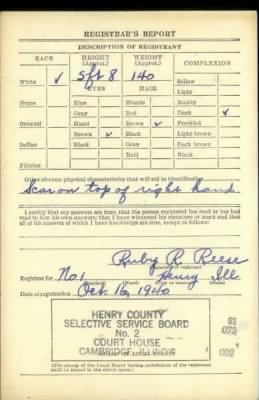 REGISTRAR'S REPORT
DESCRIPTION OF REGISTRANT
RACE HEIGHT (Approx.) WEIGHT (Approx.) COMPLEXION
White ✓ 5ft 8 140 Sallow
EYES HAIR Light
Negro Blue Blonde Ruddy
Gray Red Dark ✓
Oriental Hazel Brown ✓ Freckled
Brown ✓ Black Light brown
Indian Black Gray Dark brown
Bald Black
Filipino
Other obvious physical characteristics that will aid in identification
Scar on top of right hand
I certify that my answers are true; that the person registered has read or has had
read to him his own answers; that I have witnessed his signature or mark and that
all of his answers of which I have knowledge are true, except as follows:
Ruby R. Reese
(Signature of registrar)
Registrar for No. 1 Henry Ill.
Date of registration Oct. 16, 1940
HENRY COUNTY
SELECTIVE SERVICE BOARD
No. 2
COURT HOUSE
CAMBRIDGE, ILLINOIS
61
073
002
(The stamp of the Local Board having jurisdiction of the registrant
shall be placed in the above space.)